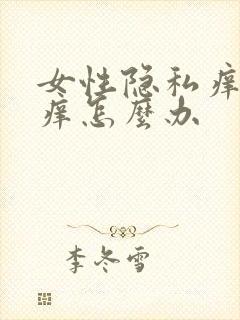 女性隐私痒
痒怎麼办
李冬雪